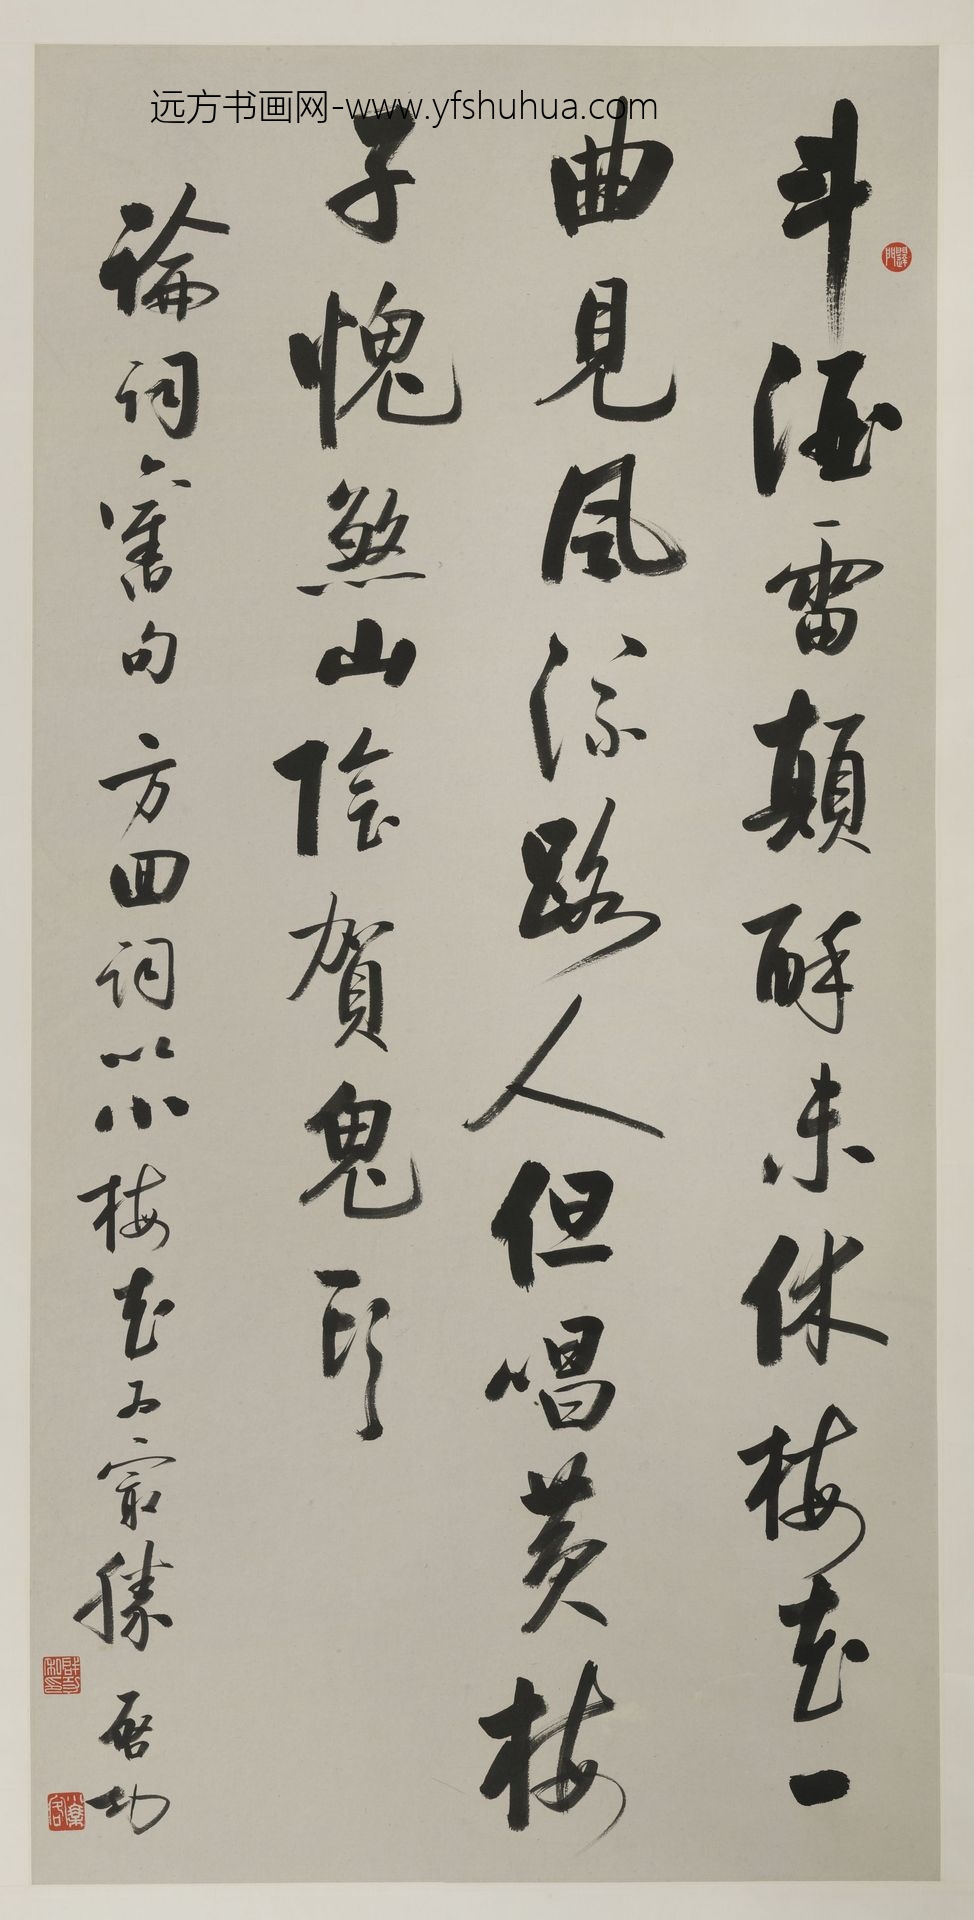 远方书画网-www.yfshuhua.com
斗酒雷颠醉未休梅花一
曲見風流路人但唱黄梅
子愧煞山陰賀鬼頭
論詞舊句方回詞以小梅花为最勝
启功